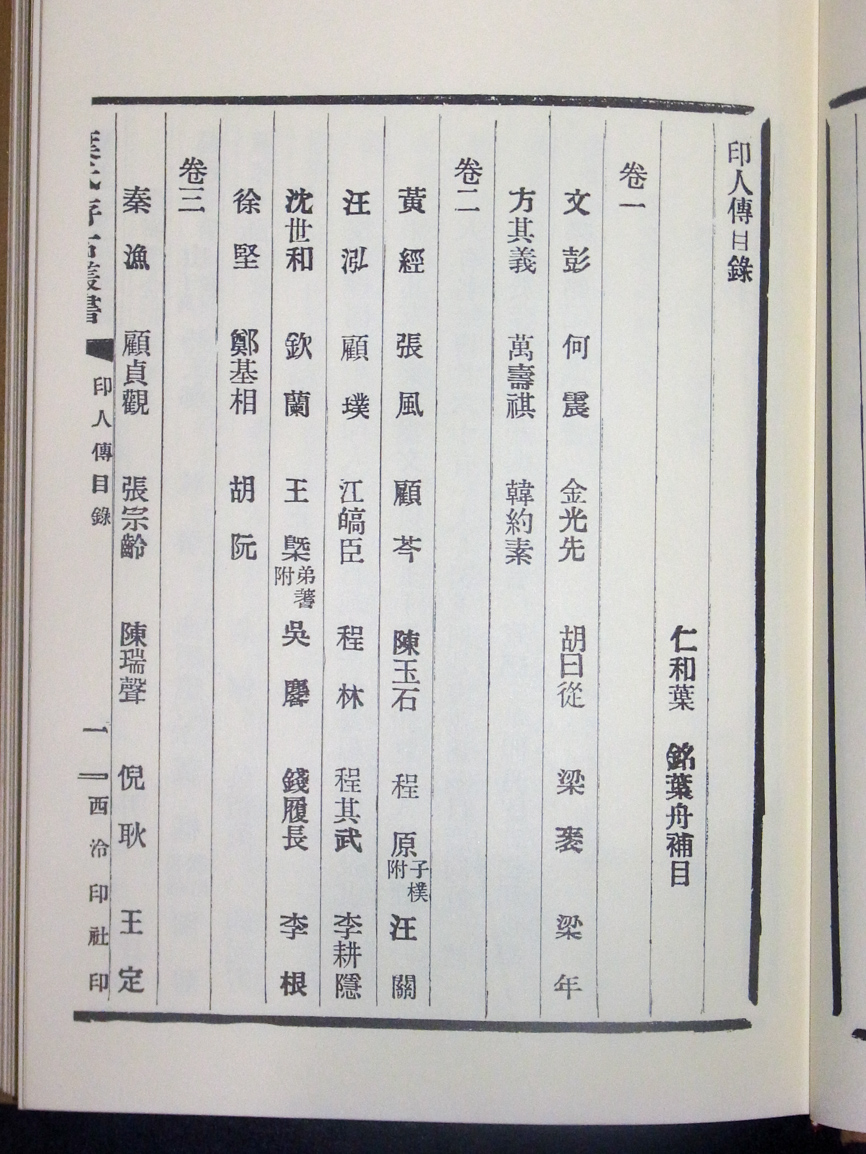 印人傳目錄
仁和葉 銘葉舟補目
卷一
文彭 何震 金光先 胡曰從 梁袠 梁年
方其義 萬壽祺 韓約素
卷二
黃經 張風 顧苓 陳玉石 程原 子樸附 汪關
汪泓 顧璞 江皜臣 程林 程其武 李耕隱
沈世和 欽蘭 王槩 弟蓍附 吳麐 錢履長 李根
徐堅 鄭基相 胡阮
卷三
秦漁 顧貞觀 張宗齡 陳瑞聲 倪耿 王定
存古叢書
印人傳目錄
一
西泠印社印